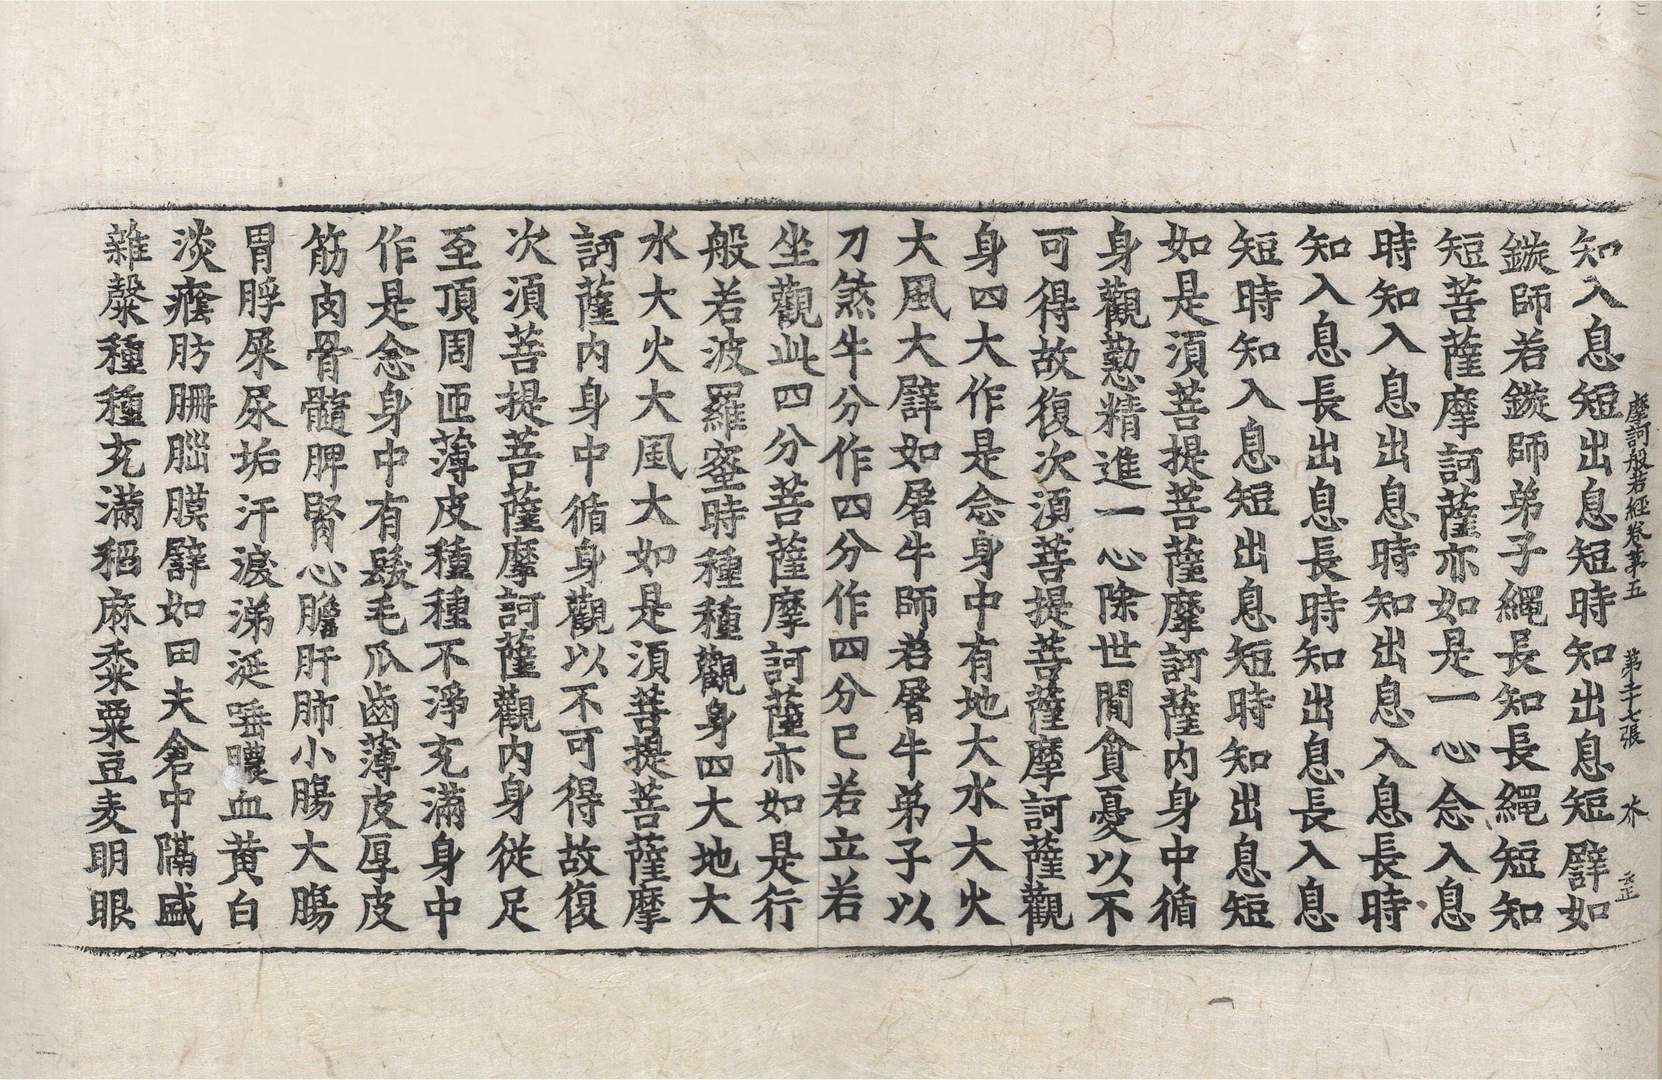 摩訶般若經卷第五　第二十七張　芥
知入息短出息短時知出息短譬如
鏇師若鏇師弟子繩長知長繩短知
短菩薩摩訶薩亦如是一心念入息
時知入息出息時知出息入息長時
知入息長出息長時知出息長入息
短時知入息短出息短時知出息短
如是須菩提菩薩摩訶薩內身中循
身觀懃精進一心除世間貪憂以不
可得故復次須菩提菩薩摩訶薩觀
身四大作是念身中有地大水大火
大風大譬如屠牛師若屠牛弟子以
刀煞牛分作四分作四分已若立若
坐觀此四分菩薩摩訶薩亦如是行
般若波羅蜜時種種觀身四大地大
水大火大風大如是須菩提菩薩摩
訶薩內身中循身觀以不可得故復
次須菩提菩薩摩訶薩觀內身從足
至頂周匝薄皮種種不淨充滿身中
作是念身中有髮毛爪齒薄皮厚皮
筋肉骨髓脾腎心膽肝肺小腸大腸
胃脬屎尿垢汗淚涕涎唾膿血黃白
淡癊肪𦙽腦膜譬如田夫倉中隔盛
雜糓種種充滿稻麻黍粟豆麦明眼